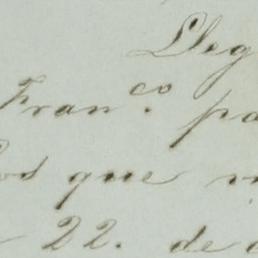 Lleg
Fran.co pa
os que
22. de